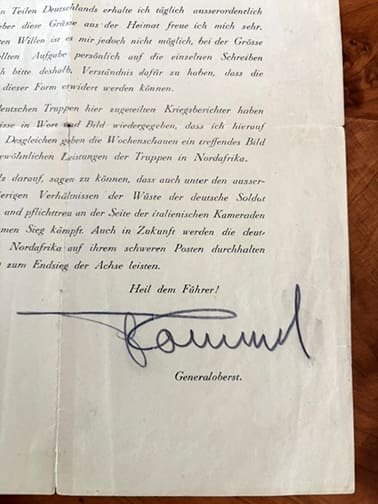 n Teilen Deutschlands erhalte ich täglich ausserordentlich
ber diese Grüsse aus der Heimat freue ich mich sehr.
ten Willen ist es mir jedoch nicht möglich, bei der Grösse
ollten Aufgabe persönlich auf die einzelnen Schreiben
h bitte deshalb, Verständnis dafür zu haben, dass die
dieser Form erwidert werden können.
deutschen Truppen hier zugeteilten Kriegsberichter haben
isse in Wort und Bild wiedergegeben, dass ich hierauf
Desgleichen geben die Wochenschauen ein treffendes Bild
ewöhnlichen Leistungen der Truppen in Nordafrika.
lz darauf, sagen zu können, dass auch unter den ausser-
ierigen Verhältnissen der Wüste der deutsche Soldat
und pflichttreu an der Seite der italienischen Kameraden
men Sieg kämpft. Auch in Zukunft werden die deut-
Nordafrika auf ihrem schweren Posten durchhalten
zum Endsieg der Achse leisten.
Heil dem Führer!
Rommel
Generaloberst.